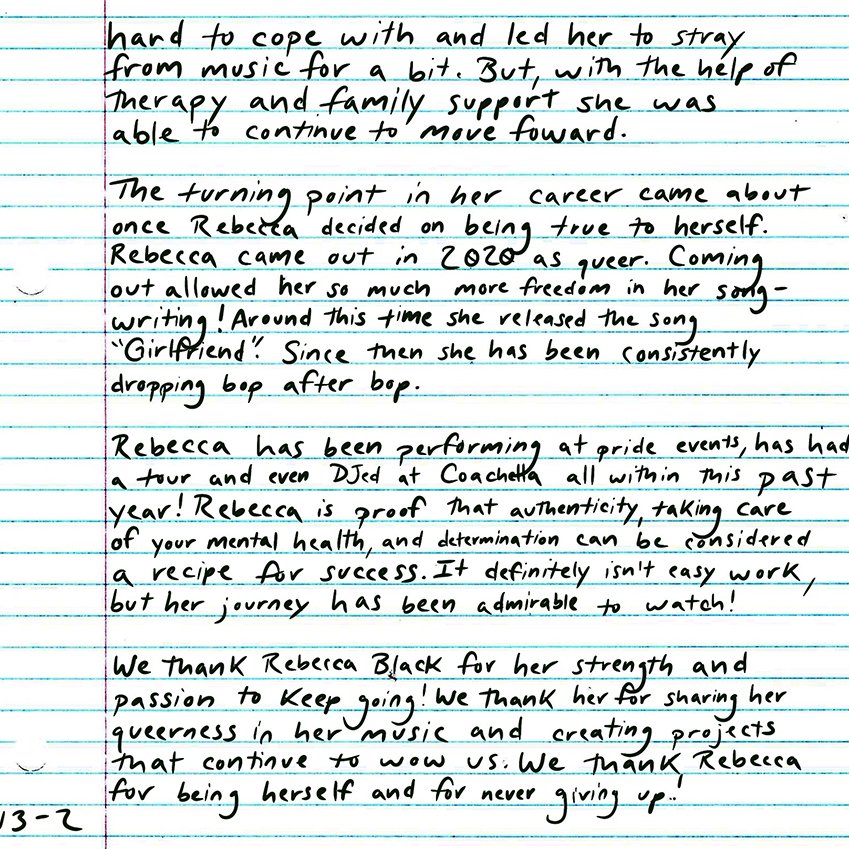 hard to cope with and led her to stray
from music for a bit. But, with the help of
therapy and family support she was
able to continue to move foward.
The turning point in her career came about
once Rebecca decided on being true to herself.
Rebecca came out in 2020 as queer. Coming
out allowed her so much more freedom in her song-
writing! Around this time she released the song
"Girlfriend". Since then she has been consistently
dropping bop after bop.
Rebecca has been performing at pride events, has had
a tour and even DJed at Coachella all within this past
year! Rebecca is proof that authenticity, taking care
of your mental health, and determination can be considered
a recipe for success. It definitely isn't easy work,
but her journey has been admirable to watch!
We thank Rebecca Black for her strength and
passion to keep going! We thank her for sharing her
queerness in her music and creating projects
that continue to wow us. We thank Rebecca
for being herself and for never giving up!
13-2